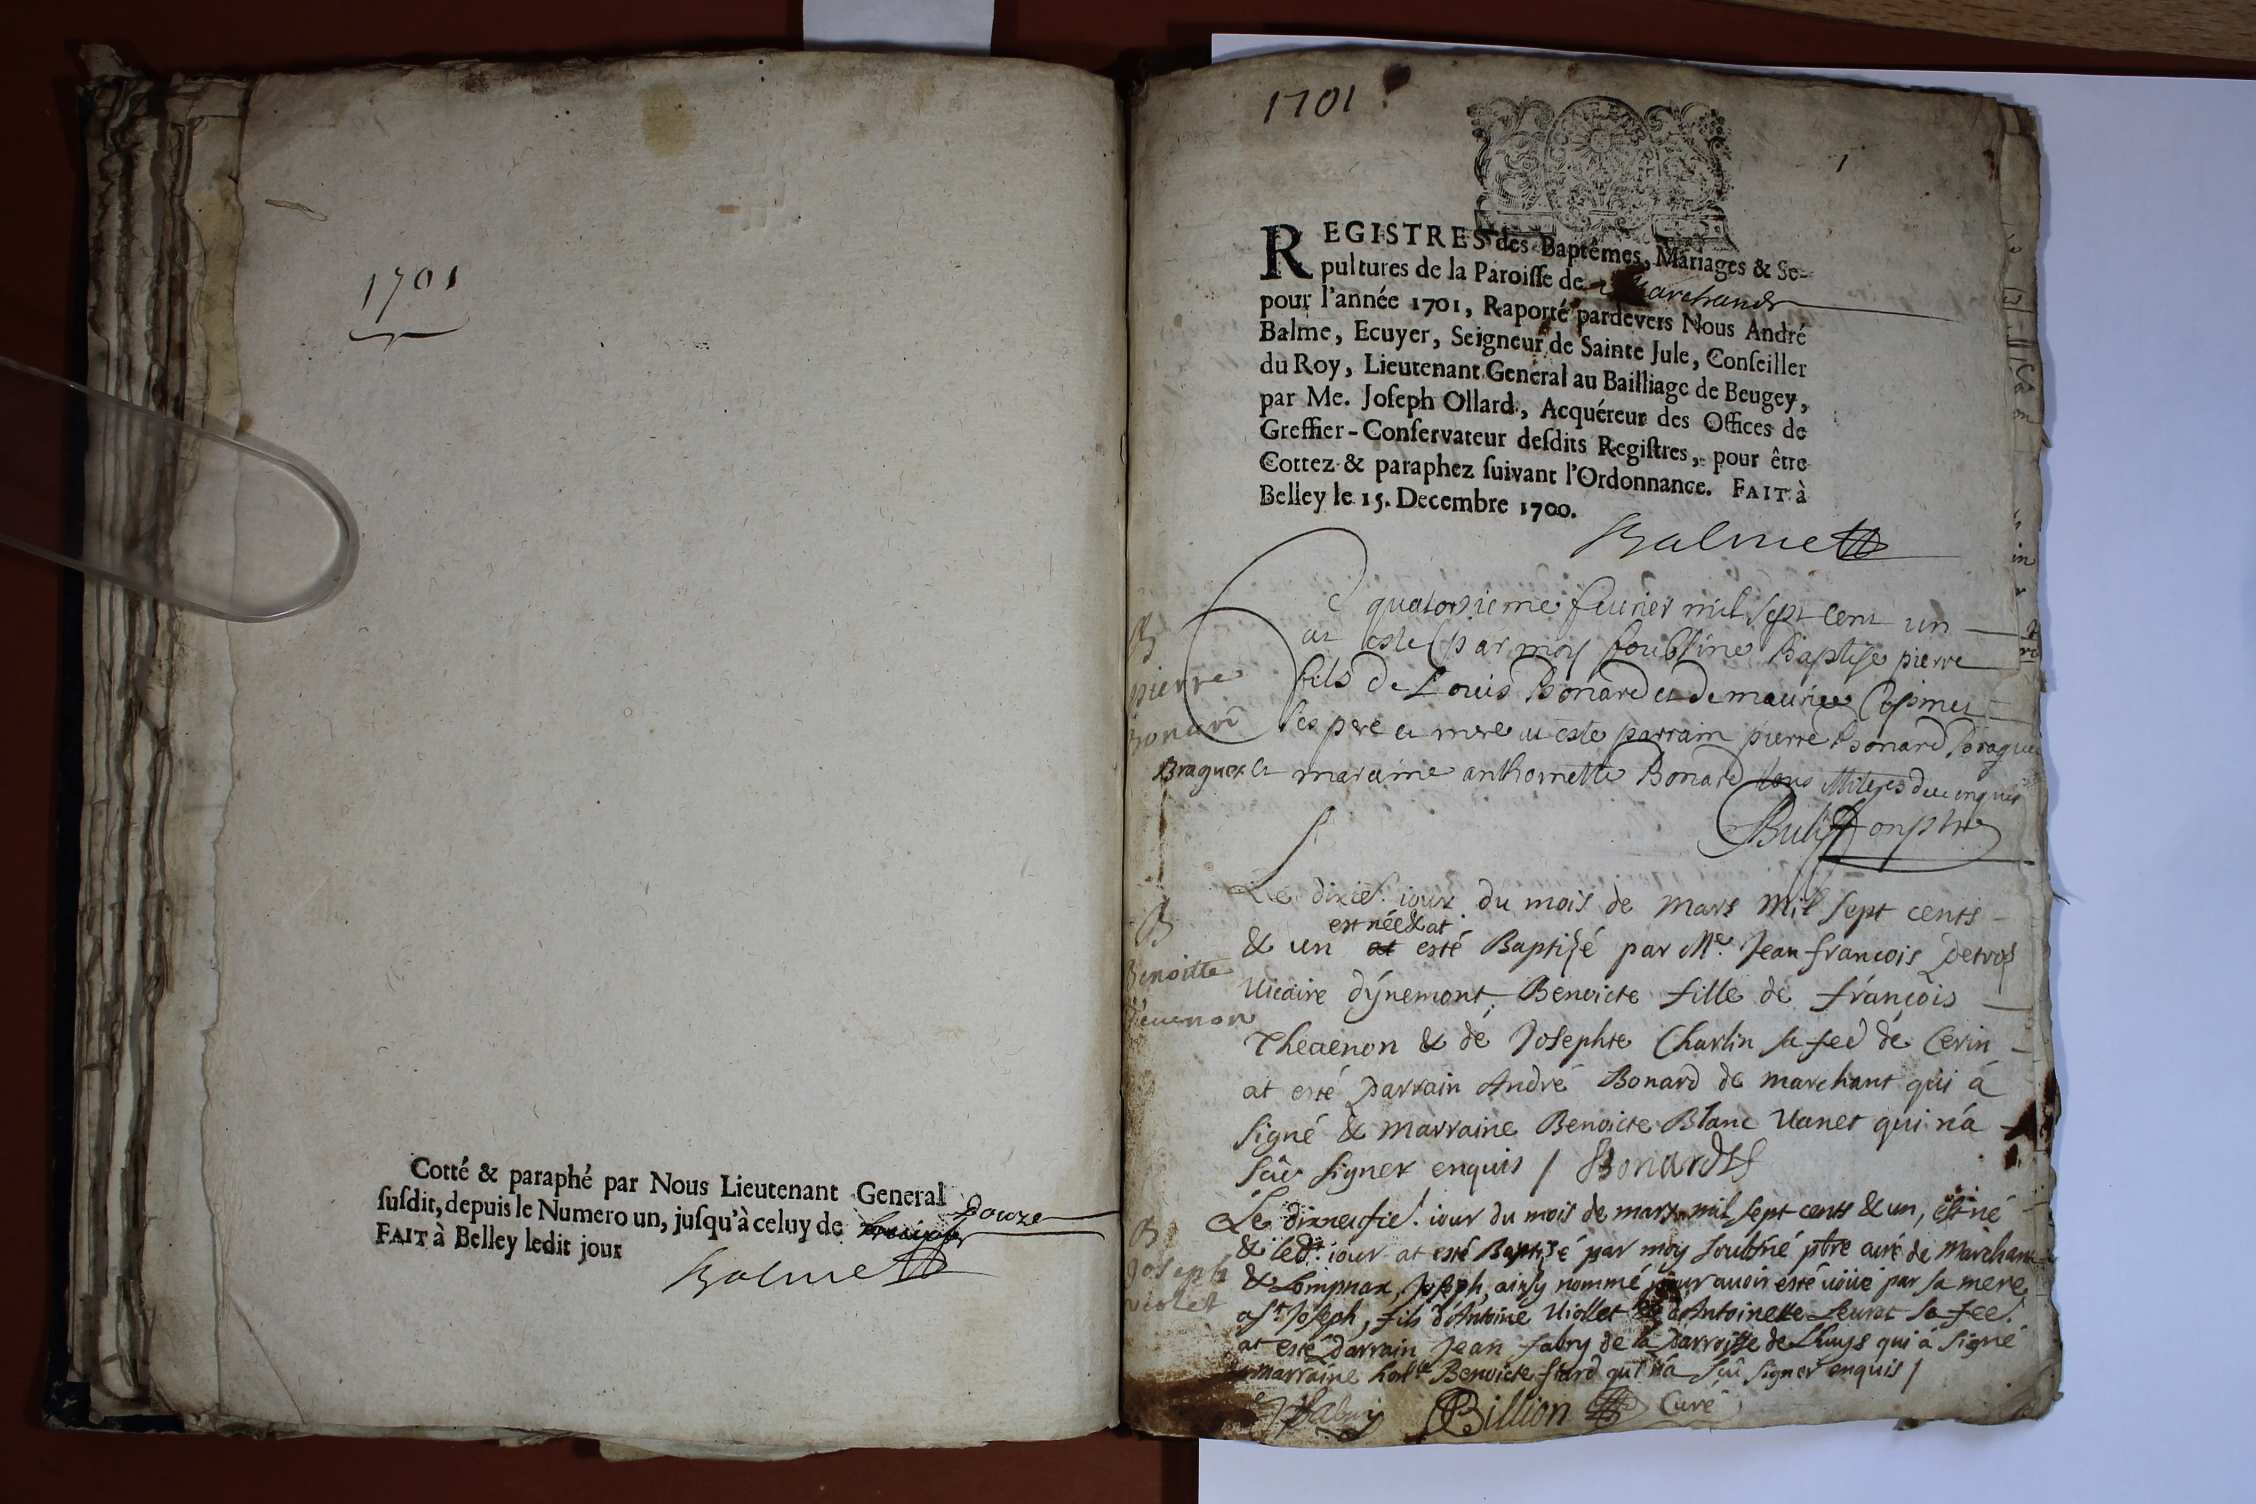 1701
Cotté & paraphé par Nous Lieutenant General
susdit, depuis le Numero un, jusqu'à celuy de douze
FAIT à Belley ledit jour
Balme
1701
1
REGISTRES des Baptêmes, Mariages & Se-
pultures de la Paroisse de Marchand
pour l'année 1701, Raporté pardevers Nous André
Balme, Ecuyer, Seigneur de Sainte Jule, Conseiller
du Roy, Lieutenant General au Bailliage de Beugey,
par Me. Joseph Ollard, Acquéreur des Offices de
Greffier-Conservateur desdits Registres, pour être
Cottez & paraphez suivant l'Ordonnance. FAIT à
Belley le 15. Decembre 1700.
Balme
B
pierre
Bonard
Braguex
quatorsieme feurier mil sept cent un
at este par moy soubsine Baptise pierre
fils de Louis Bonard et de maurice
ses pere et mere at este parrain pierre Bonard
et maraine anthoinette Bonard tous enquis
B
Benoitte
Teuenon
Le dixie. iour du mois de Mars Mil sept cents
est née & at
& un at esté Baptizé par Me. Jean françois
Uicaire d'ynemont, Benoicte fille de françois
Theuenon & de Josephte Charlin sa fee de Cerin
at esté parrain André Bonard de marchant qui á
signé & marraine Benoicte Blanc Uanet qui n'a
sceu signer enquis / Bonard
B
Joseph
violet
Le dixneufie. iour du mois de mars mil sept cents & un, est né
& led. iour at esté Baptizé par moy soubsné ptre curé de Marchant
& Lompnax, Joseph, ainsy nommé pour auoir esté uöüé par sa mere
a st Joseph, fils d'Antoine Uiollet & d'Antoinette Leurat sa fee.
at esté parrain Jean fabry de la parroisse de Lhuys qui á signé
marraine hon.le Benoicte fiard qui n'a sçû signer enquis /
Jfabry Billion Curé